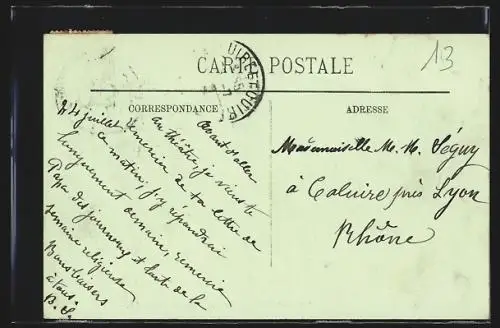 13
CARTE POSTALE
CORRESPONDANCE
ADRESSE
24 juillet. Avant d'aller
au théâtre, je viens te
remercier de ta lettre de
ce matin, j'y répondrai
longuement demain, remercie
Papa des journaux et de la
semaine religieuse
Bons baisers
à tous.
Mademoiselle M. M. Séguy
à Caluire près Lyon
Rhône